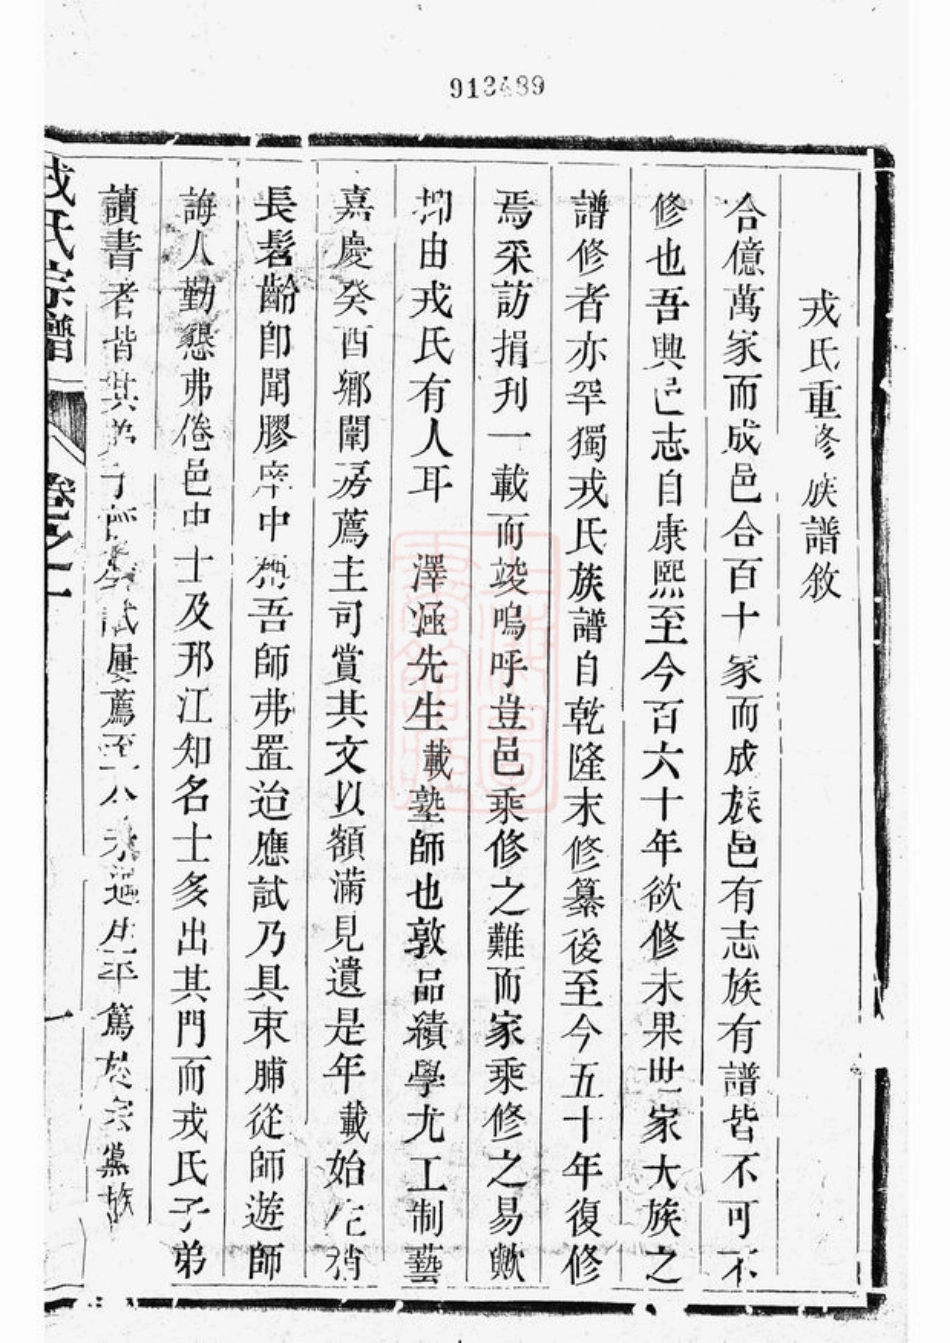 913489
戎氏重修族譜敘
合億萬家而成邑合百十家而成族邑有志族有譜皆不可不
修也吾興邑志自康熙至今百六十年欲修未果世家大族之
譜修者亦罕獨戎氏族譜自乾隆末修纂後至今五十年復修
焉采訪捐刊一載而竣嗚呼豈邑乘修之難而家乘修之易歟
抑由戎氏有人耳 澤涵先生載塾師也敦品績學尤工制藝
嘉慶癸酉鄉闈房薦主司賞其文以額滿見遺是年載始 稍
長髫齡卽聞膠庠中 吾師弗置迨應試乃具束脯從師遊師
誨人勤懇弗倦邑中士及邗江知名士多出其門而戎氏子弟
讀書者皆其弟子 試屢薦至 生平篤於宗黨族
戎氏宗譜 卷之一 一